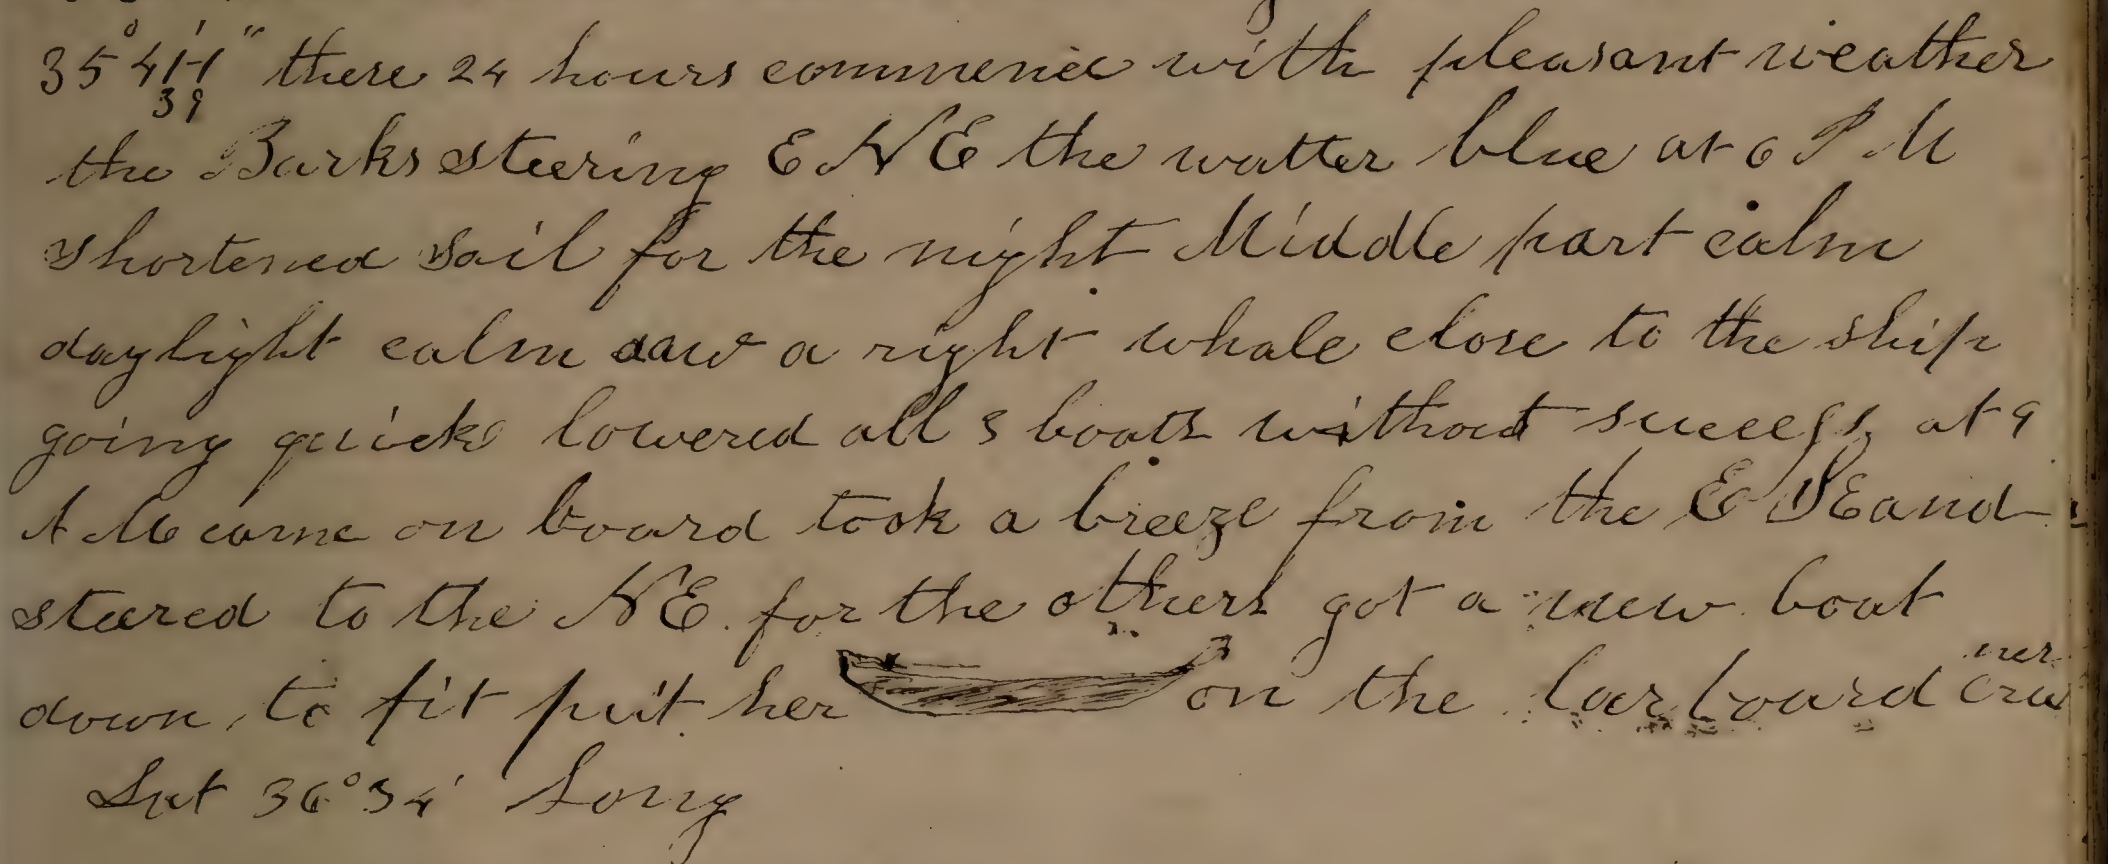 35° 41' " these 24 hours commence with pleasant weather
39
the Barks steering E N E the watter blue at 6 P M
shortened sail for the night Middle part calm
daylight calm saw a right whale close to the ship
going quick lowered all 3 boats without success at 9
A M came on board took a breeze from the E S E and
steered to the NE for the others got a new boat
down to fit put her on the larboard
Lat 36° 34' Long